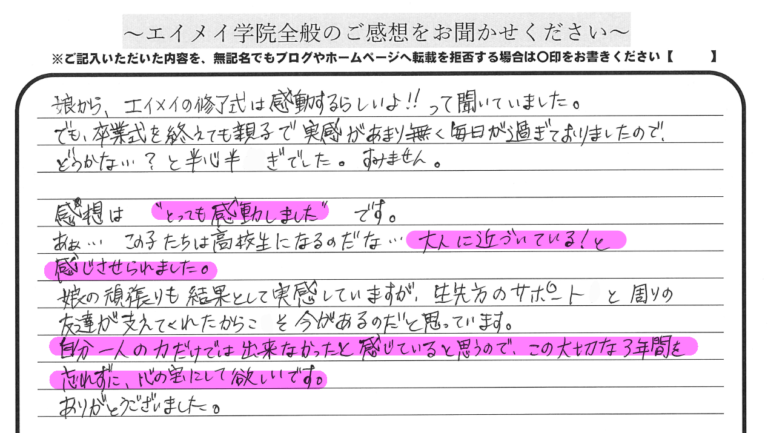 ～エイメイ学院全般のご感想をお聞かせください～
※ご記入いただいた内容を、無記名でもブログやホームページへ転載を拒否する場合は○印をお書きください【　　】
娘から、エイメイの修了式は感動するらしいよ!!って聞いていました。
でも、卒業式を終えても親子で実感があまり無く毎日が過ぎておりましたので、
どうかな…？と半心半 ぎでした。すみません。
感想は “とっても感動しました” です。
あぁ… この子たちは高校生になるのだな… 大人に近づいている！と
感じさせられました。
娘の頑張りも結果として実感していますが、生先方のサポート と周りの
友達が支えてくれたからこ そ今があるのだと思っています。
自分一人の力だけでは出来なかったと感じていると思うので、この大切な3年間を
忘れずに、心の宝にして欲しいです。
ありがとうございました。